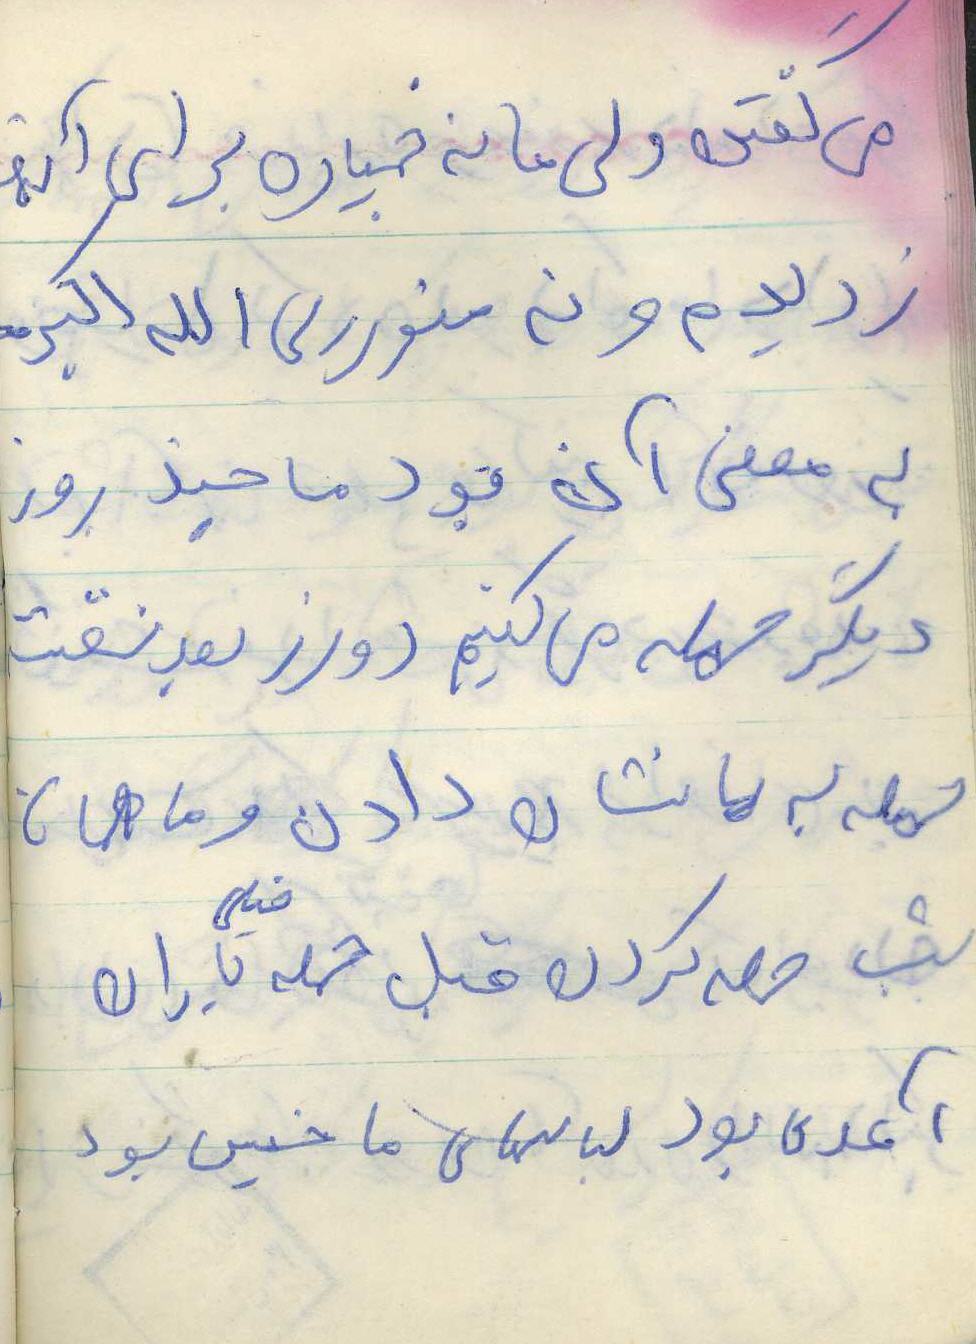 می گفتن ولی ما نه خمپاره برای آنها
زدیم و نه منور ولی الله اکبر
به معنی آن قود ما چند روز
دیگر حمله می کنیم دو روز بعد نقشه
حمله به ما نشان دادن و ما همان
شب حمله کردن قبل حمله باران خیلی
آمدی بود لباسهای ما خیس بود